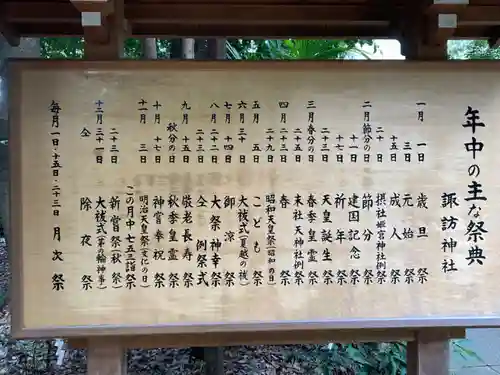 年中の主な祭典
諏訪神社
一月 一日 歳旦祭
三日 元始祭
十五日 成人祭
二十日 摂社姫宮神社例祭
二月 節分の日 節分祭
十一日 建国記念祭
十七日 祈年祭
二十三日 天皇誕生祭
三月 春分の日 春季皇霊祭
二十三日 末社天神社例祭
四月 二十三日 春祭
二十九日 昭和天皇祭(昭和の日)
五月 五日 こども祭
六月 三十日 大祓式(夏越の祓)
七月 十四日 御涼祭
八月 二十二日 大祭神幸祭
二十三日 仝 例祭式
九月 十五日 敬老長寿祭
秋分の日 秋季皇霊祭
十月 十七日 神宮奉祝祭
十一月 三日 明治天皇祭(文化の日)
この月中 七五三詣祭
二十三日 新嘗祭(秋祭)
十二月 三十一日 大祓式(茅の輪神事)
仝 除夜祭
毎月一日・十五日・二十三日 月次祭
諏訪神社